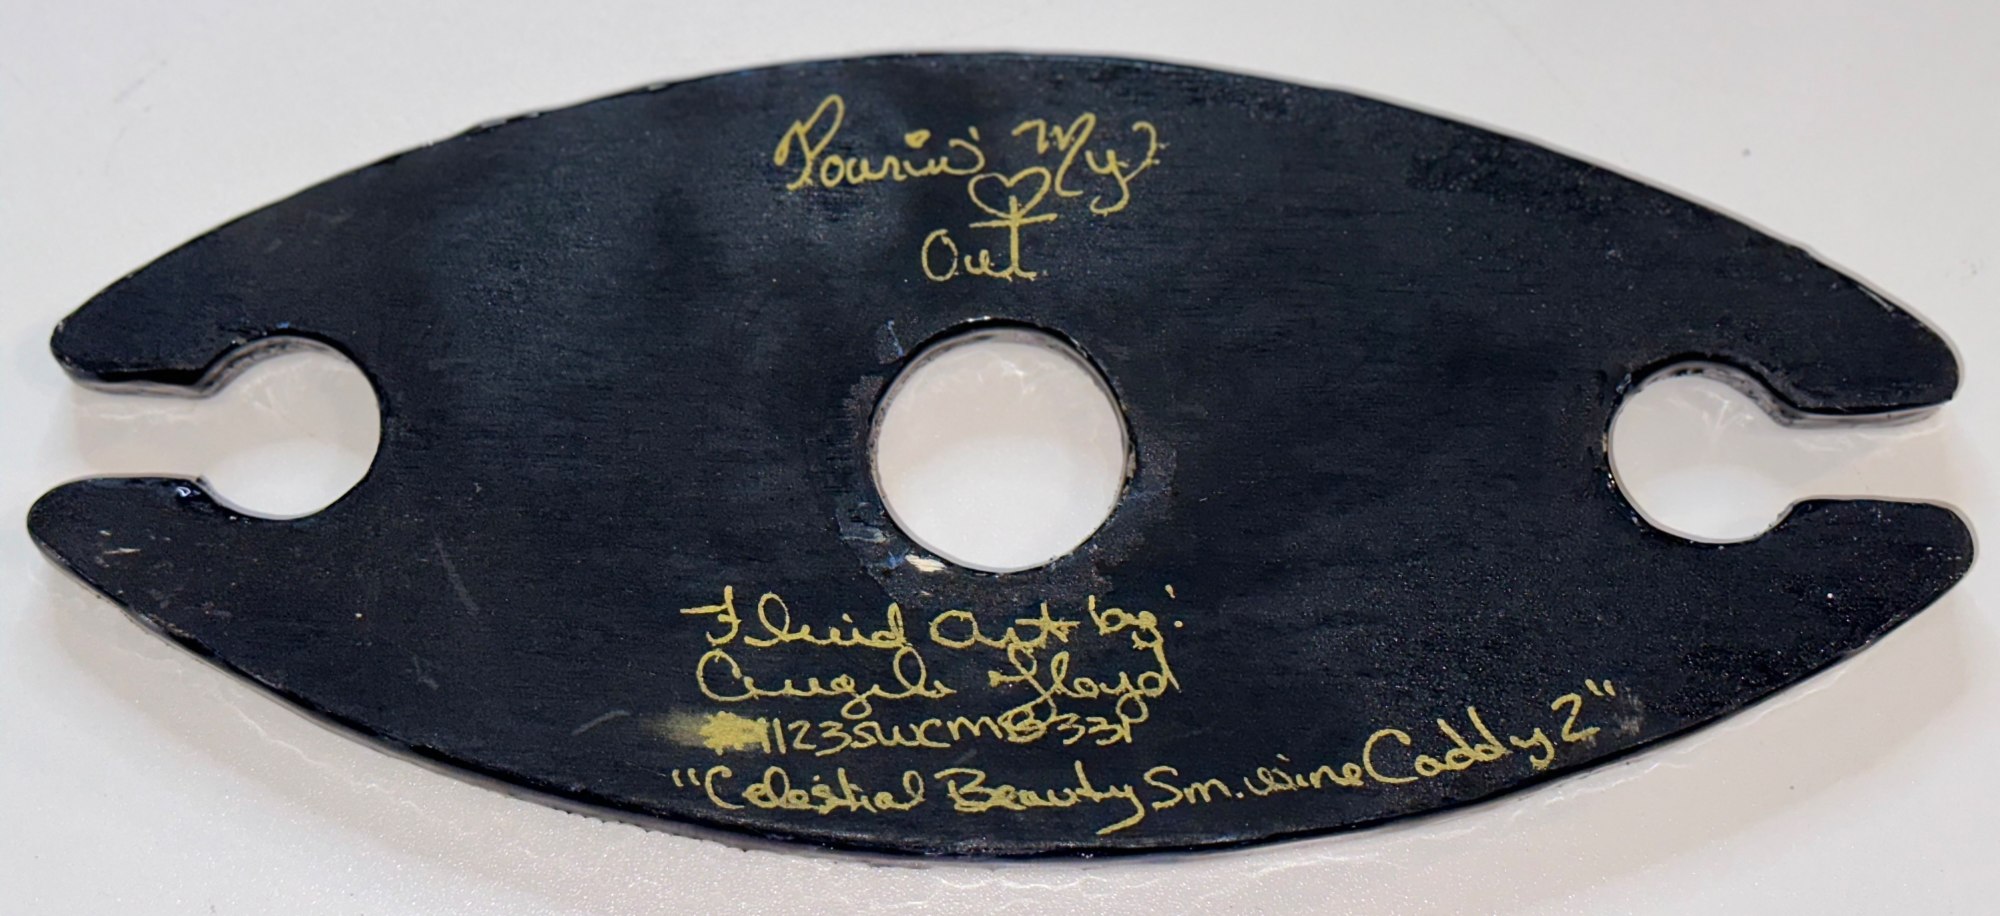 Pourin' My
♡
Out
Fluid Art by:
Angela Floyd
"Celestial Beauty Sm. Wine Caddy 2"